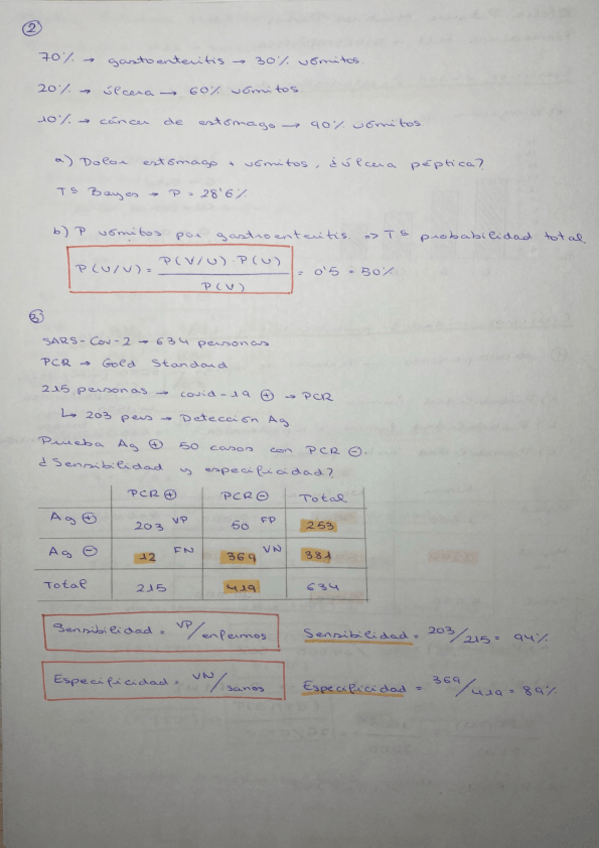 2
70% → gastroenteritis → 30% vómitos.
20% → úlcera → 60% vómitos.
10% → cáncer de estómago → 90% vómitos
a) Dolor estómago + vómitos, ¿úlcera péptica?
Tª Bayes → P = 28'6%
b) P vómitos por gastroenteritis => Tª probabilidad total.
P(U/V) = P(V/U) · P(U) / P(V) = 0'5 = 50%
3
SARS-Cov-2 → 634 personas
PCR → Gold Standard
215 personas → covid-19 ⊕ → PCR
↳ 203 pers → Detección Ag
Prueba Ag ⊕ 50 casos con PCR ⊖.
¿Sensibilidad y especificidad?
PCR ⊕ PCR ⊖ Total
Ag ⊕ 203 VP 50 FP 253
Ag ⊖ 12 FN 369 VN 381
Total 215 419 634
Sensibilidad = VP/enfermos Sensibilidad = 203/215 = 94%
Especificidad = VN/sanos Especificidad = 369/419 = 89%